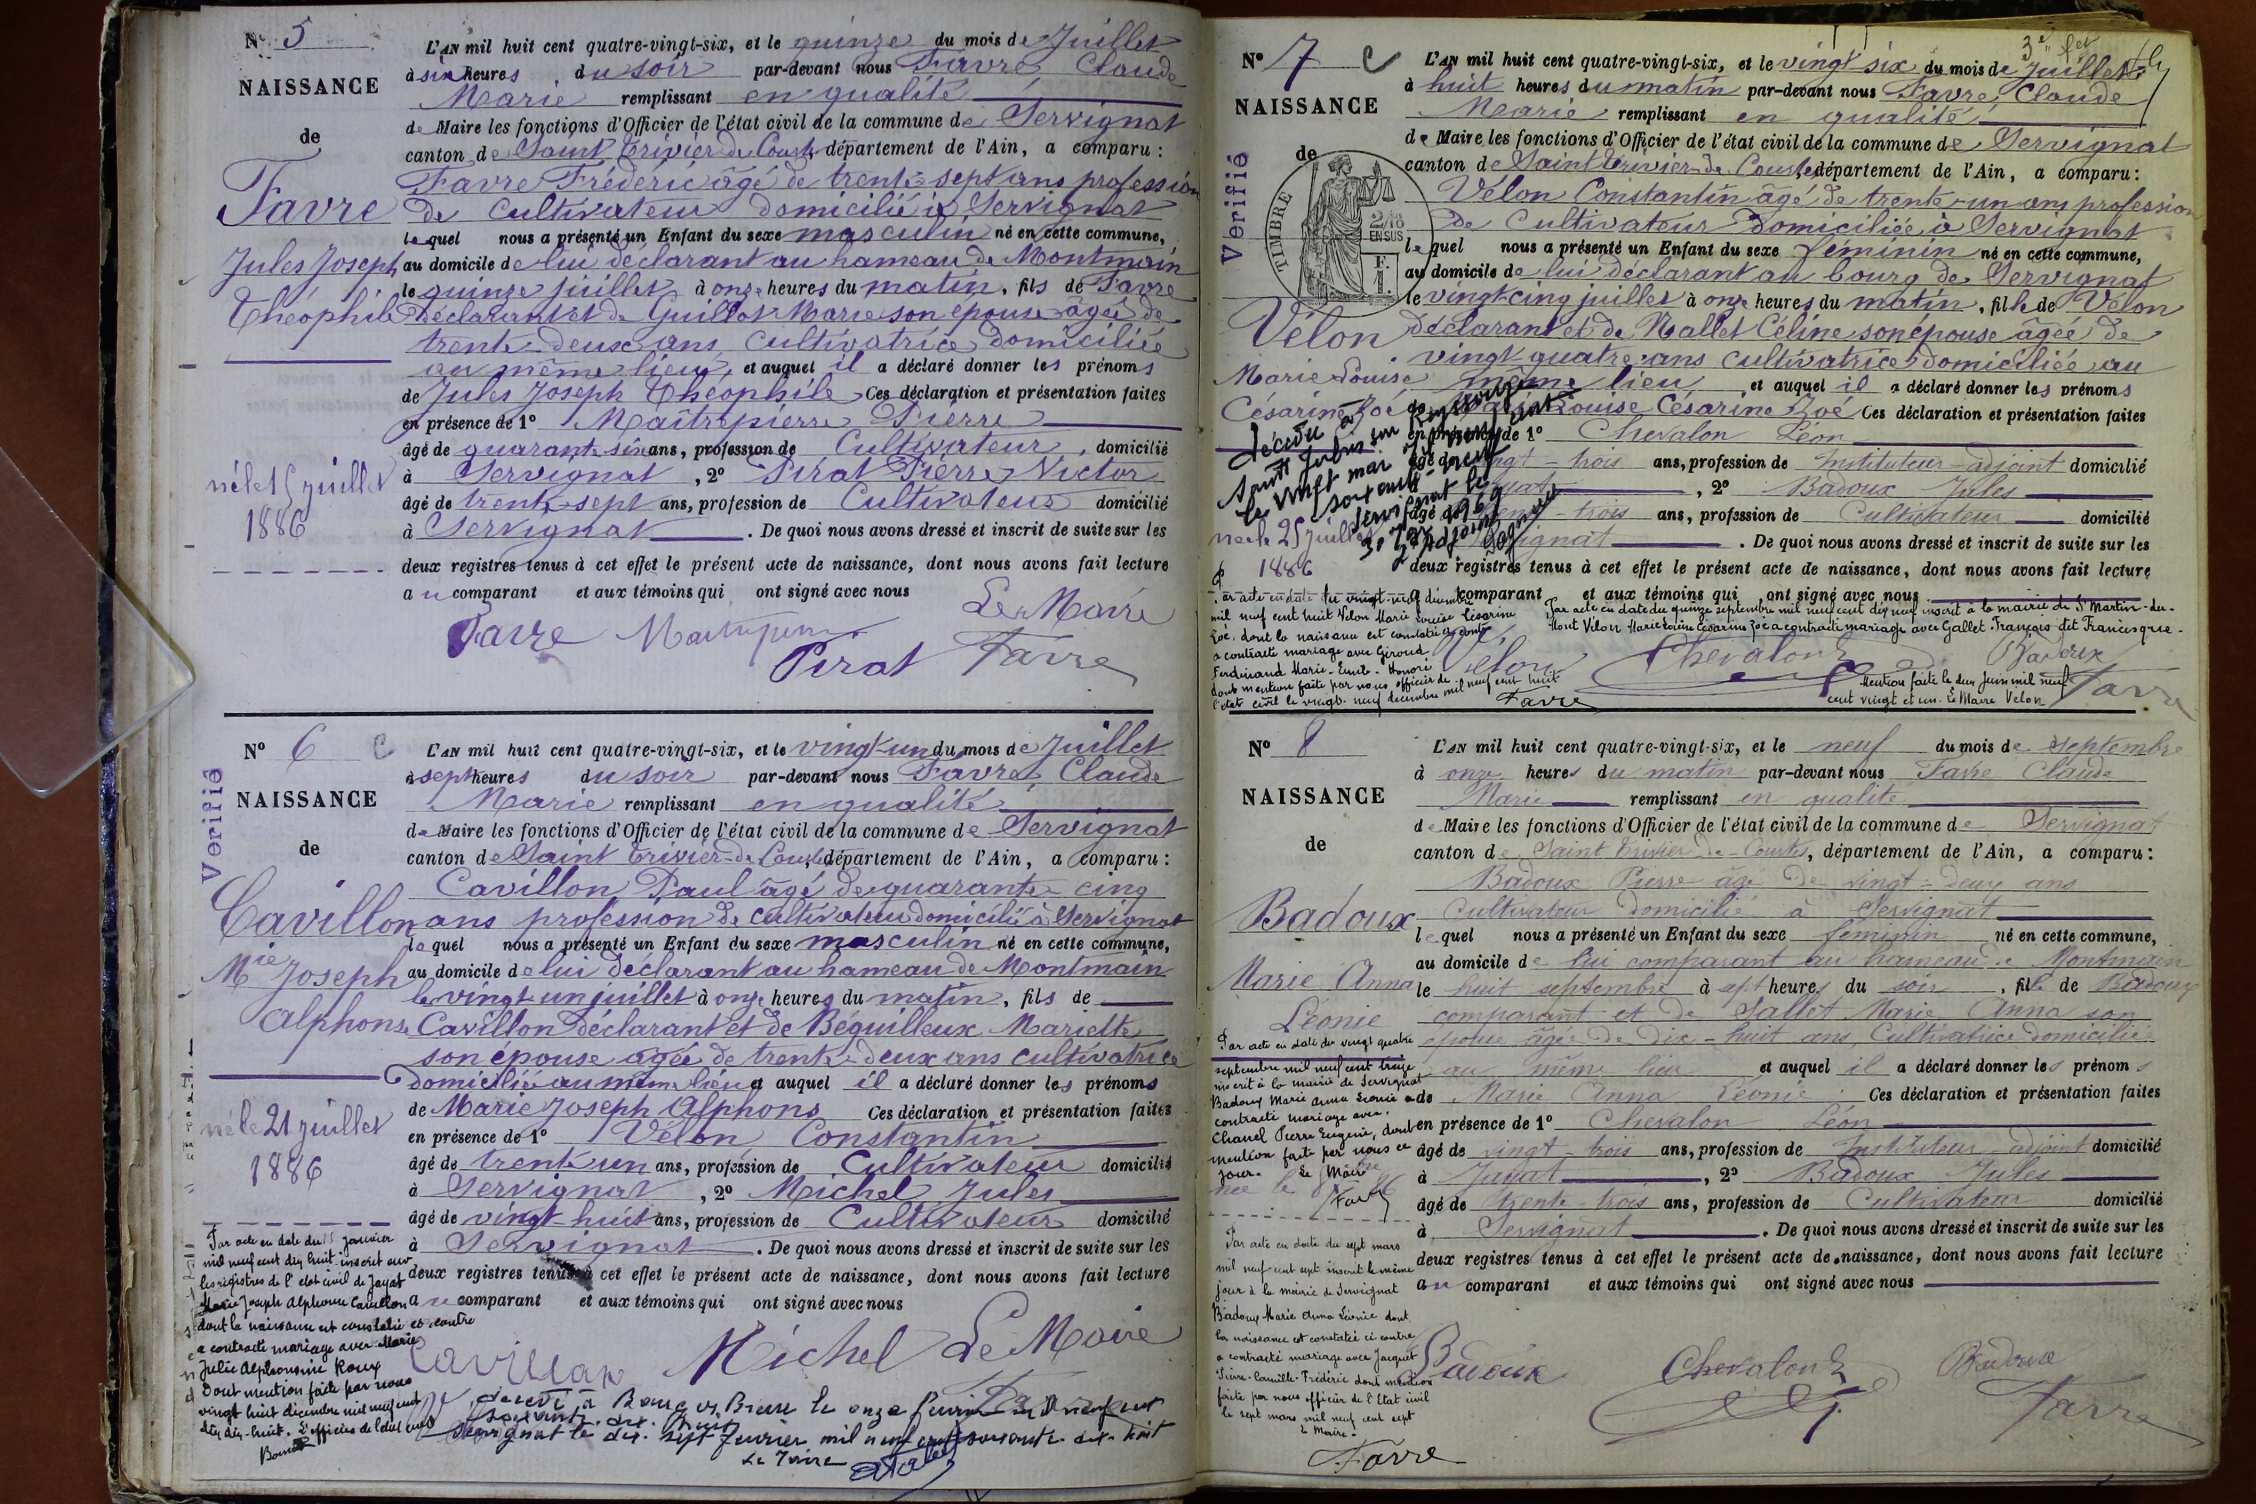 N° 5
NAISSANCE
de
Favre
Jules Joseph
Théophile
né le 15 juillet
1886
L'AN mil huit cent quatre-vingt-six, et le quinze du mois de Juillet
à six heures du soir par-devant nous Favre Claude
Marie remplissant en qualité
de Maire les fonctions d'Officier de l'état civil de la commune de Servignat
canton de Saint Trivier de Courtes département de l'Ain, a comparu :
Favre Frédéric âgé de trente-sept ans profession
de cultivateur domicilié à Servignat
lequel nous a présenté un Enfant du sexe masculin né en cette commune,
au domicile de lui déclarant au hameau de Montmain
le quinze juillet à onze heures du matin, fils de Favre
déclarant et de Guillot Marie son épouse âgée de
trente-deux ans cultivatrice domiciliée
au même lieu, et auquel il a déclaré donner les prénoms
de Jules Joseph Théophile Ces déclaration et présentation faites
en présence de 1° Maîtrepierre Pierre
âgé de quarante six ans, profession de Cultivateur, domicilié
à Servignat, 2° Pirat Pierre Victor
âgé de trente-sept ans, profession de Cultivateur domicilié
à Servignat. De quoi nous avons dressé et inscrit de suite sur les
deux registres tenus à cet effet le présent acte de naissance, dont nous avons fait lecture
au comparant et aux témoins qui ont signé avec nous
Le Maire
Favre
Pirat Favre
N° 6 C
Verifié
NAISSANCE
de
Cavillon
Mie Joseph
Alphons
né le 21 juillet
1886
L'AN mil huit cent quatre-vingt-six, et le vingt-un du mois de Juillet
à sept heures du soir par-devant nous Favre Claude
Marie remplissant en qualité
de Maire les fonctions d'Officier de l'état civil de la commune de Servignat
canton de Saint Trivier-de-Courtes, département de l'Ain, a comparu :
Cavillon Paul âgé de quarante-cinq
ans profession de cultivateur domicilié à Servignat
lequel nous a présenté un Enfant du sexe masculin né en cette commune,
au domicile de lui déclarant au hameau de Montmain
le vingt-un juillet à onze heures du matin, fils de
Cavillon déclarant et de Béguilleux Mariette
son épouse âgée de trente-deux ans cultivatrice
domiciliée au même lieu et auquel il a déclaré donner les prénoms
de Marie Joseph Alphons Ces déclaration et présentation faites
en présence de 1° Vélon Constantin
âgé de trente un ans, profession de Cultivateur domicilié
à Servignat, 2° Michel Jules
âgé de vingt huit ans, profession de Cultivateur domicilié
à Servignat. De quoi nous avons dressé et inscrit de suite sur les
deux registres tenus à cet effet le présent acte de naissance, dont nous avons fait lecture
au comparant et aux témoins qui ont signé avec nous
Par acte en date du 15 janvier
mil neuf cent dix huit inscrit sur
les registres de l'etat civil de Jayat
Marie Joseph Alphonse Cavillon
dont la naissance est constatée ci-contre
a contracté mariage avec Marie
Julie Alphonsine Roux
Dont mention faite par nous
vingt huit décembre mil neuf cent
dix-huit. L'officier de l'état civil
Cavillon Michel Le Maire
décédé à Bourg en Bresse le onze février mil neuf cent
soixante-dix-huit
Servignat le dix-sept février mil neuf cent soixante-dix-huit
Le Maire
N° 7 C
NAISSANCE
de
Verifié
TIMBRE
2/10
EN SUS
F.
1.
Vélon
Marie Louise
Césarine Zoé
née le 25 juillet
1886
L'AN mil huit cent quatre-vingt-six, et le vingt six du mois de Juillet
à huit heures du matin par-devant nous Favre Claude
Marie remplissant en qualité
de Maire les fonctions d'Officier de l'état civil de la commune de Servignat
canton de Saint Trivier-de-Courtes département de l'Ain, a comparu :
Vélon Constantin âgé de trente-un ans profession
de Cultivateur domiciliée à Servignat
lequel nous a présenté un Enfant du sexe féminin né en cette commune,
au domicile de lui déclarant au bourg de Servignat
le vingt-cinq juillet à onze heures du matin, fille de Vélon
déclarant et de Mallet Céline son épouse âgée de
vingt-quatre ans cultivatrice domiciliée au
même lieu et auquel il a déclaré donner les prénoms
de Marie Louise Césarine Zoé Ces déclaration et présentation faites
en présence de 1° Chevalon Léon
âgé de vingt-trois ans, profession de Instituteur-adjoint domicilié
à Jayat, 2° Badoux Jules
âgé de trente-trois ans, profession de Cultivateur domicilié
à Servignat. De quoi nous avons dressé et inscrit de suite sur les
deux registres tenus à cet effet le présent acte de naissance, dont nous avons fait lecture
au comparant et aux témoins qui ont signé avec nous
décédée à
Saint Julien sur Reyssouze
le vingt mai mil neuf cent
soixante-neuf
Servignat le
2e Adjoint
Par acte en date du vingt-neuf décembre
mil neuf cent huit Vélon Marie Louise Césarine
Zoé, dont la naissance est constatée ci-contre
a contracté mariage avec Giroud
Ferdinand Marie-Emile-Honoré
dont mention faite par nous officier de
l'état civil le vingt-neuf décembre mil neuf cent huit
Favre
Par acte en date du quinze septembre mil neuf cent dix neuf inscrit à la mairie de St Martin-du-
Mont Vélon Marie Louise Césarine Zoé a contracté mariage avec Gallet François dit Francisque.
Vélon Chevalon L Badoux
Mention faite le deux Juin mil neuf
cent vingt et un. Le Maire Velon
Favre
N° 8
NAISSANCE
de
Badoux
Marie Anna
Léonie
L'AN mil huit cent quatre-vingt-six, et le neuf du mois de septembre
à onze heures du matin par-devant nous Favre Claude
Marie remplissant en qualité
de Maire les fonctions d'Officier de l'état civil de la commune de Servignat
canton de Saint Trivier-de-Courtes, département de l'Ain, a comparu :
Badoux Pierre âgé de vingt-deux ans
Cultivateur domicilié à Servignat
lequel nous a présenté un Enfant du sexe féminin né en cette commune,
au domicile de lui comparant au hameau de Montmain
le huit septembre à sept heures du soir, fille de Badoux
comparant et de Sallet Marie Anna son
épouse âgée de dix-huit ans, Cultivatrice domiciliée
au même lieu et auquel il a déclaré donner les prénoms
de Marie Anna Léonie Ces déclaration et présentation faites
en présence de 1° Chevalon Léon
âgé de vingt-trois ans, profession de Instituteur adjoint domicilié
à Jayat, 2° Badoux Jules
âgé de trente-trois ans, profession de Cultivateur domicilié
à Servignat. De quoi nous avons dressé et inscrit de suite sur les
deux registres tenus à cet effet le présent acte de naissance, dont nous avons fait lecture
au comparant et aux témoins qui ont signé avec nous
Par acte en date du vingt quatre
septembre mil neuf cent treize
inscrit à la mairie de Servignat
Badoux Marie Anna Léonie a
contracté mariage avec
Chanel Pierre Eugène, dont
mention faite par nous ce
jour. Le Maire
Favre
Par acte en date du sept mars
mil neuf cent sept inscrit le même
jour à la mairie de Servignat
Badoux Marie Anna Léonie dont
la naissance est constatée ci contre
a contracté mariage avec Jacquet
Pierre-Camille-Frédéric dont mention
faite par nous officier de l'Etat civil
le sept mars mil neuf cent sept
le Maire.
Favre
Badoux Chevalon L Badoux
Favre